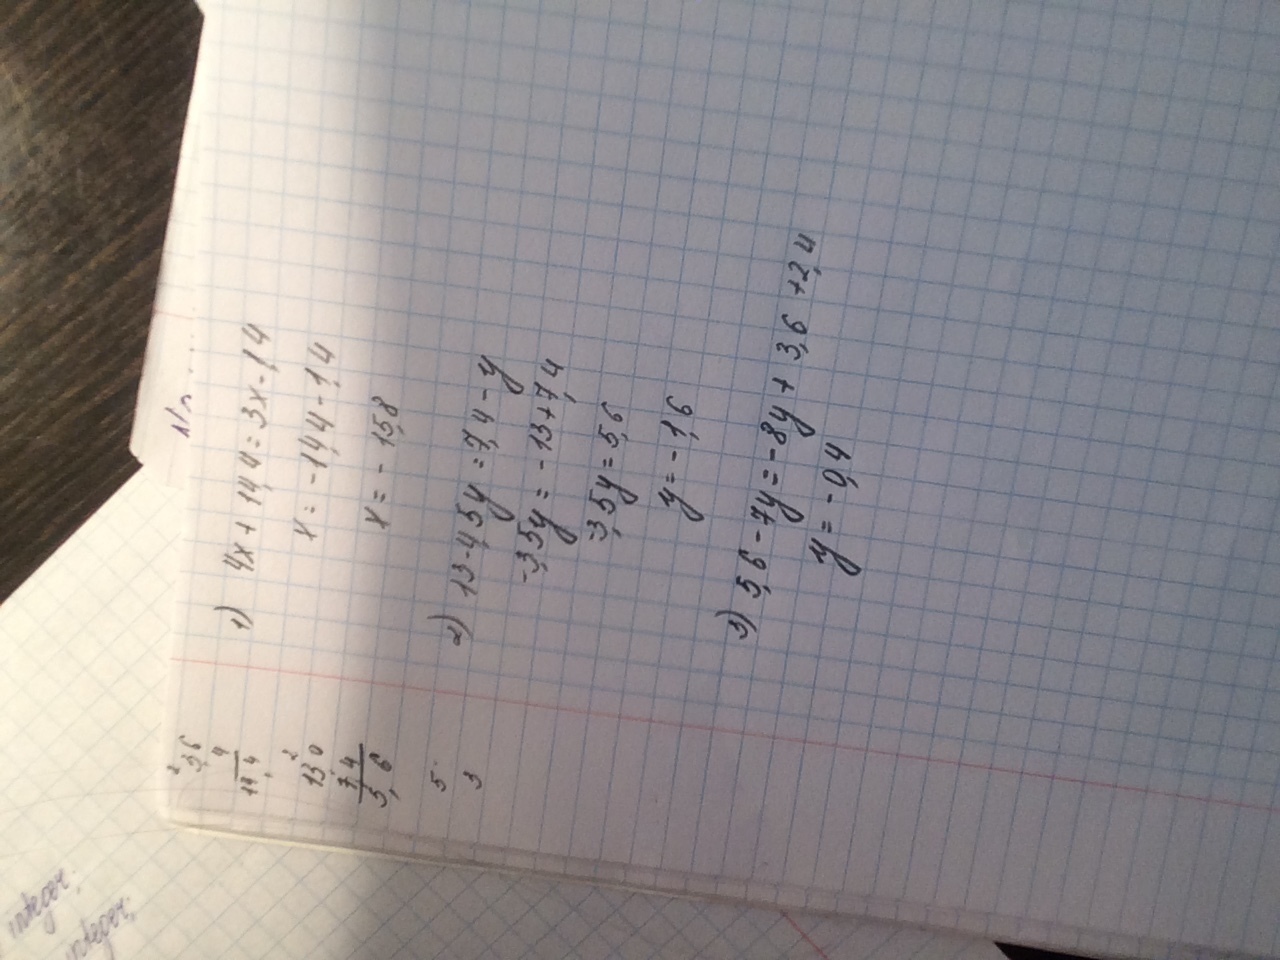 1) 4x + 14,4 = 3x - 1,4
x = -14,4 - 1,4
x = - 15,8
2) 13 - 4,5y = 7,4 - y
-3,5y = -13 + 7,4
-3,5y = 5,6
y = -1,6
3) 5,6 - 7y = -8y + 3,6 + 2,4
y = -0,4
2
3,6
4
14,4
2
13 0
7,4
5,6
5
3
integer;
integer;